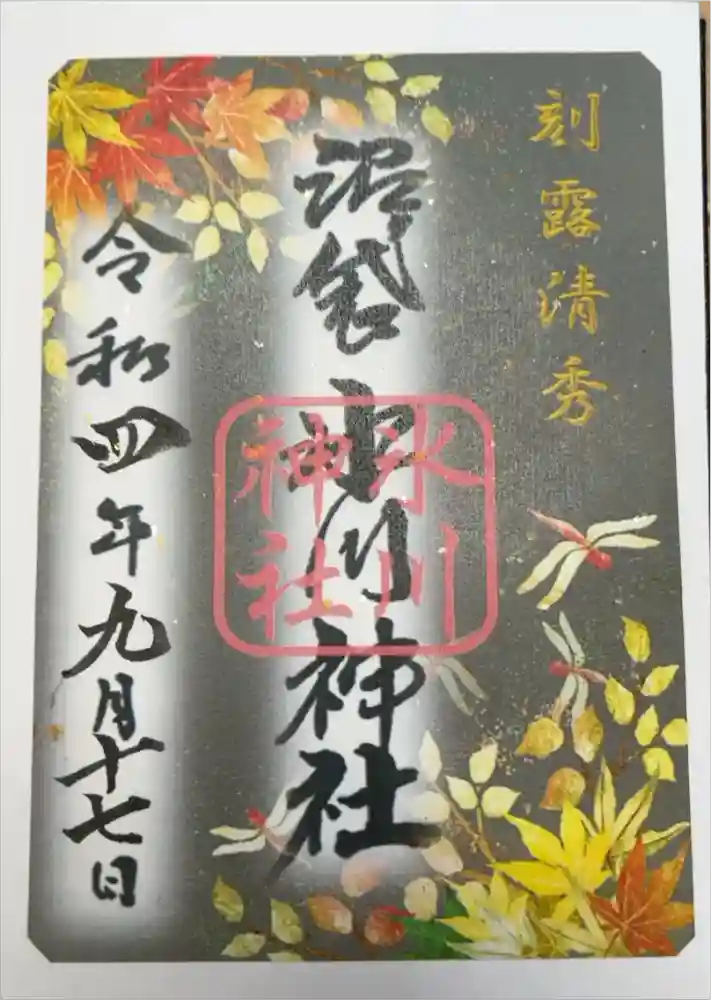 刻露清秀
沼袋氷川神社
氷川神社
令和四年九月十七日